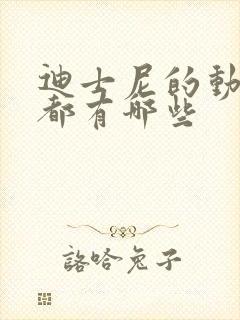 迪士尼的動
都有哪些
詻哈兔子